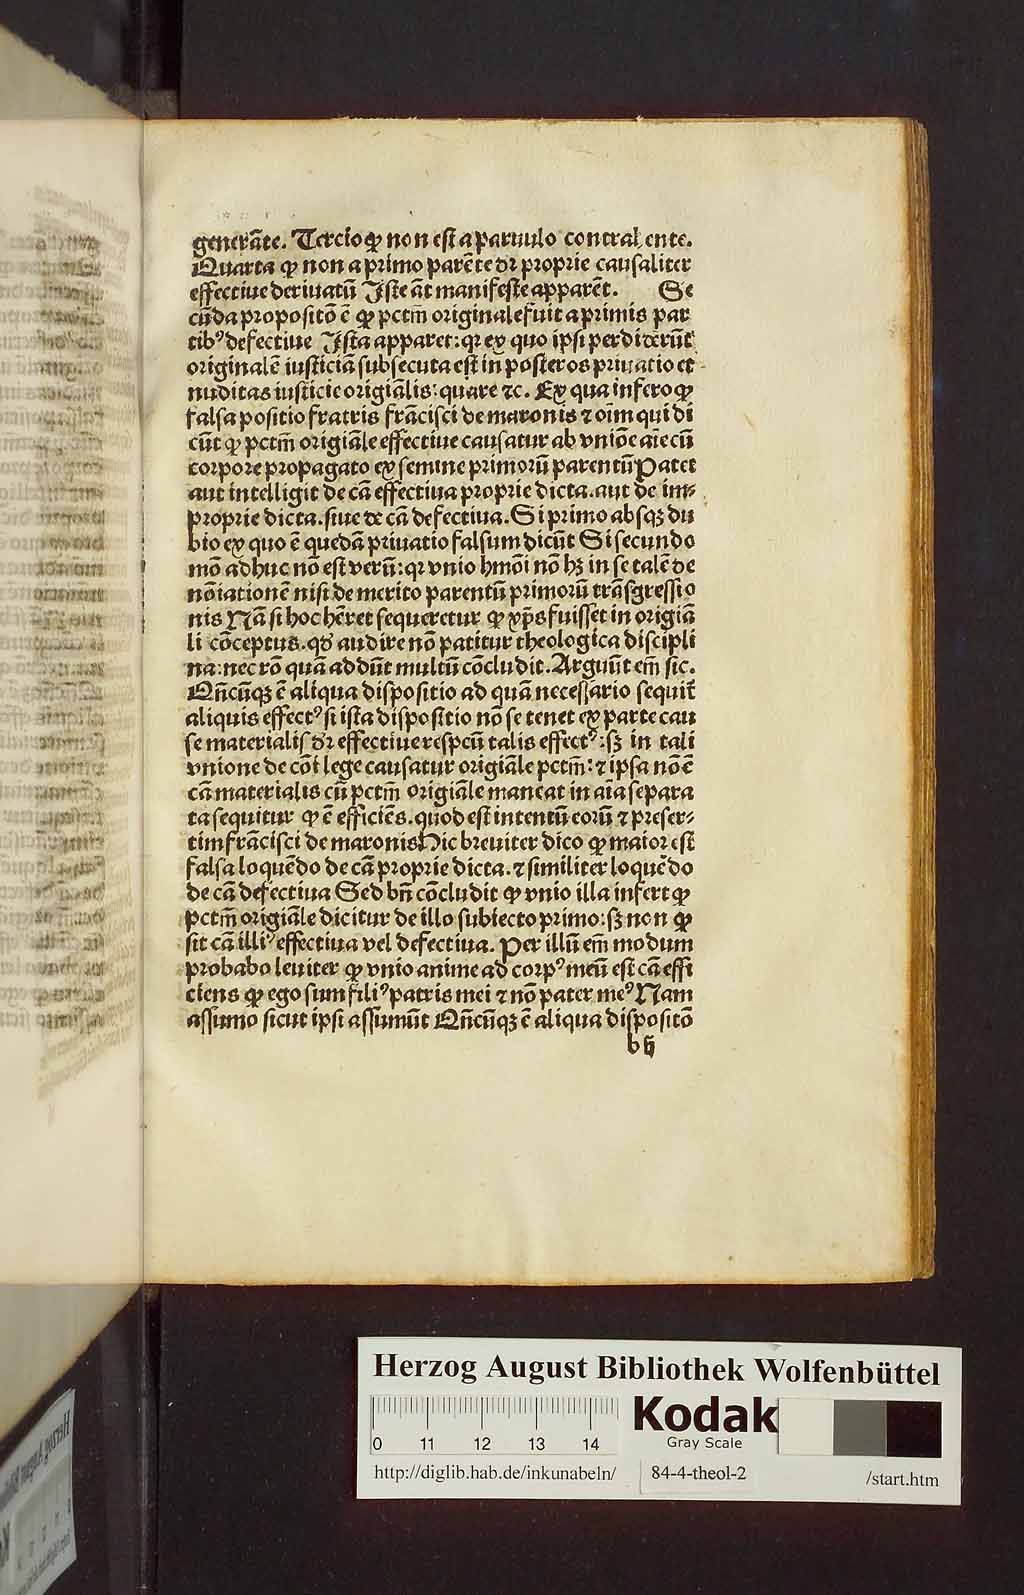 generãte. Tercio ꝙ non est a paruulo contrahente.
Quarta ꝙ non a primo parẽte dr̃ proprie causaliter
effectiue deriuatũ Iste ãt manifeste apparẽt. Se
cũda propositõ ẽ ꝙ pctm̃ originale fuit a primis par
tibꝰ defectiue Ista apparet: qꝛ ex quo ipsi perdiderũt
originalẽ iusticiã subsecuta est in posteros priuatio et
nuditas iusticie origiãlis: quare ⁊c. Ex qua infero ꝙ
falsa positio fratris frãcisci de maronis ⁊ oĩm qui di
cũt ꝙ pctm̃ origiãle effectiue causatur ab vniõe aĩe cũ
corpore propagato ex semine primorũ parentũ Patet
aut intelligit de cã effectiua proprie dicta. aut de im⸗
proprie dicta. siue de cã defectiua. Si primo absqꝫ du
bio ex quo ẽ quedã priuatio falsum dicũt Si secundo
mõ adhuc nõ est verũ: qꝛ vnio hmõi nõ hꝫ in se talẽ de
nõiationẽ nisi de merito parentũ primorũ trãsgressio
nis Nã si hoc hẽret sequeretur ꝙ xp̃s fuisset in origiã
li cõceptus. qđ audire nõ patitur theologica discipli
na: nec rõ quã addũt multũ cõcludit. Arguũt em̃ sic.
Qñcũqꝫ ẽ aliqua dispositio ad quã necessario sequit̃
aliquis effectꝰ si ista dispositio nõ se tenet ex parte cau
se materialis dr̃ effectiue respcũ talis effectꝰ: sꝫ in tali
vnione de cõi lege causatur origiãle pctm̃: ⁊ ipsa nõ ẽ
cã materialis cũ pctm̃ origiãle maneat in aĩa separa
ta sequitur ꝙ ẽ efficiẽs. quod est intentũ eorũ ⁊ preser⸗
tim frãcisci de maronis Hic breuiter dico ꝙ maior est
falsa loquẽdo de cã proprie dicta. ⁊ similiter loquẽdo
de cã defectiua Sed bñ cõcludit ꝙ vnio illa infert ꝙ
pctm̃ origiãle dicitur de illo subiecto primo: sꝫ non ꝙ
sit cã illiꝰ effectiua vel defectiua. Per illũ em̃ modum
probabo leuiter ꝙ vnio anime ad corpꝰ meũ est cã effi
ciens ꝙ ego sum filiꝰ patris mei ⁊ nõ pater meꝰ Nam
assumo sicut ipsi assumũt Qñcũqꝫ ẽ aliqua dispositõ
b ij
Herzog August Bibliothek Wolfenbüttel
0 11 12 13 14
Kodak
Gray Scale
http://diglib.hab.de/inkunabeln/ 84-4-theol-2 /start.htm